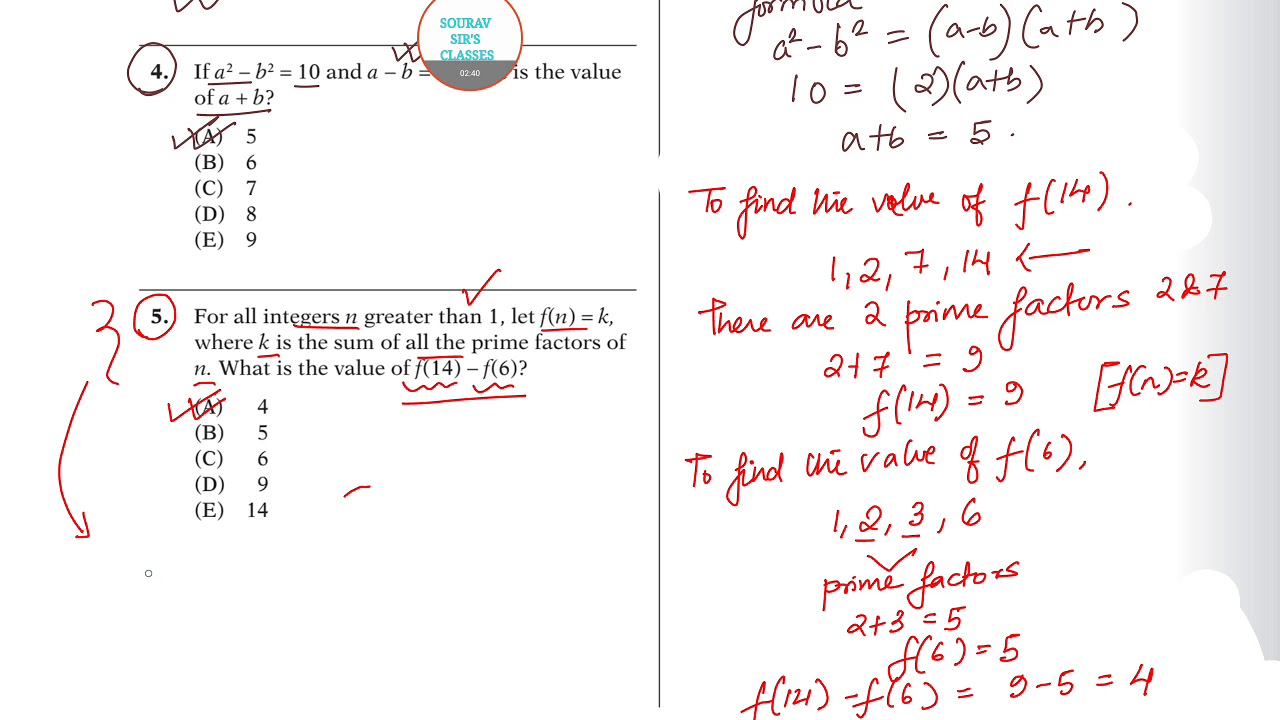 SOURAV
SIR'S
CLASSES
02:40
4. If a² – b² = 10 and a – b = is the value
of a + b?
(A) 5
(B) 6
(C) 7
(D) 8
(E) 9
5. For all integers n greater than 1, let f(n) = k,
where k is the sum of all the prime factors of
n. What is the value of f(14) – f(6)?
(A) 4
(B) 5
(C) 6
(D) 9
(E) 14
formula
a² – b² = (a–b)(a+b)
10 = (2)(a+b)
a+b = 5.
To find the value of f(14).
1, 2, 7, 14 ←
There are 2 prime factors 2&7
2+7 = 9
f(14) = 9 [f(n)=k]
To find the value of f(6),
1, 2, 3, 6
prime factors
2+3 = 5
f(6) = 5
f(14) – f(6) = 9 – 5 = 4